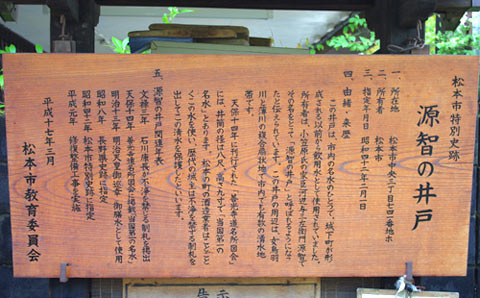 松本市特別史跡
源智の井戸
一、所在地　松本市中央三丁目七四番地ホ
二、所有者　松本市
三、指定年月日　昭和四十二年二月一日
四、由緒・来歴
この井戸は、市内の名水のひとつで、城下町が形
成される以前から飲用水として使用されていました。
所有者は、小笠原氏の家臣河辺与三左衛門源智で
その名をとって、「源智の井戸」と呼ばれるようになっ
たと伝えられています。この井戸の周辺は、女鳥羽
川と薄川の複合扇状地で市内でも有数の湧水地
帯です。
天保十四年に刊行された「善光寺道名所図会」
には、井筒の径は八尺、高さ三寸で「当国第一の
名水」とあります。松本の町の酒造業者はことごと
くこの水を使い、歴代の城主は不浄を禁ずる制札を
出してこの清水を保護したといいます。
五、源智の井戸関連年表
文禄三年　石川康長が不浄を禁ずる制札を掲出
天保十四年　善光寺道名所図会に掲載「当国第一の名水」
明治十三年　明治天皇御巡幸、御膳水として使用
昭和八年　長野県史跡に指定
昭和四十二年　松本市特別史跡に指定
平成元年　修復整備工事を実施
平成十七年三月
松本市教育委員会